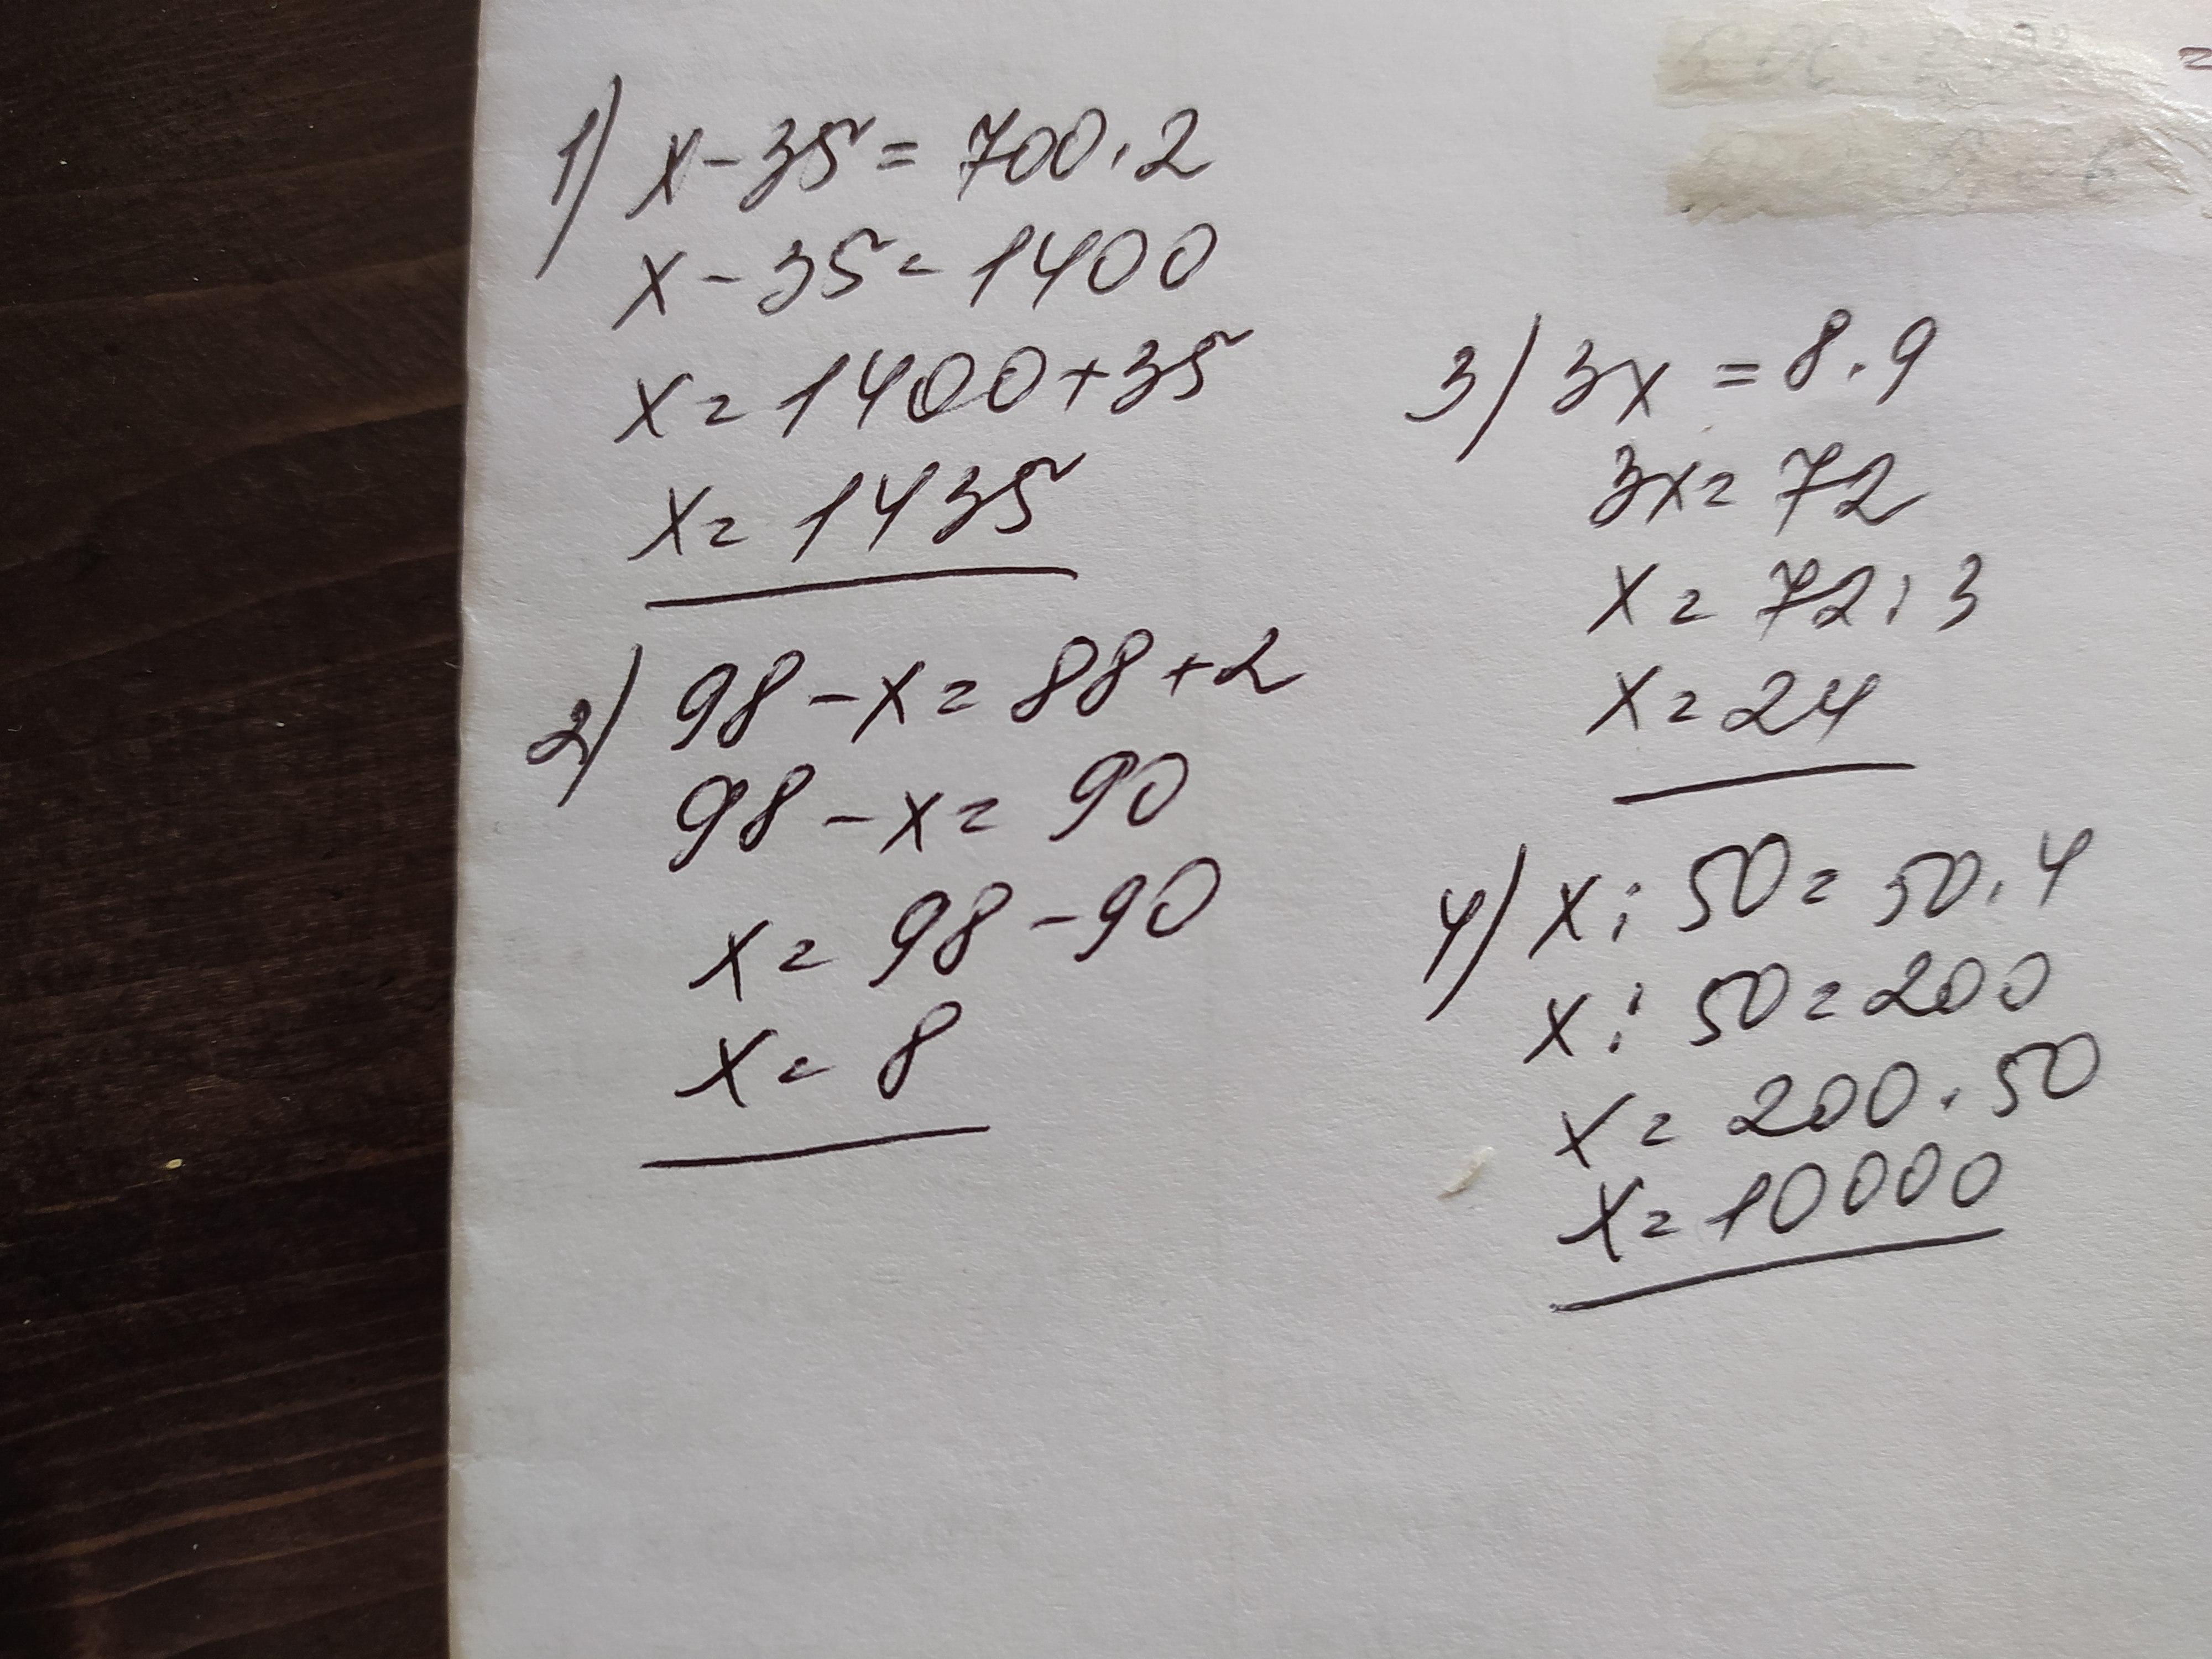 1) x-35=700·2
x-35=1400
x=1400+35
x=1435
2) 98-x=88+2
98-x=90
x=98-90
x=8
3) 3x=8·9
3x=72
x=72:3
x=24
4) x:50=50·4
x:50=200
x=200·50
x=10000